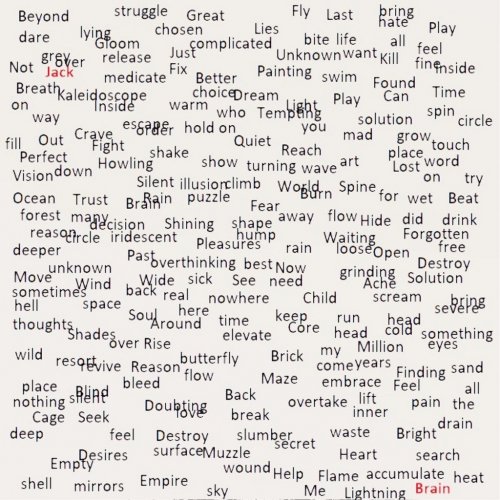 Beyond struggle Great Fly Last bring
hate
dare lying chosen Lies Play
Gloom complicated bite life all feel
grey over release Just Unknown want Kill fine inside
Not Jack Fix Painting
medicate Better swim Found
Breath Kaleidoscope choice Dream Can Time
on Inside warm Light Play
way who Tempting solution spin circle
escape order hold on you mad grow
fill Out Crave Fight Quiet touch
Perfect shake Reach place word
Howling show turning wave art Lost
Vision down on try
Silent illusion climb World Spine
Ocean Trust Brain Rain puzzle Burn for wet Beat
forest many Fear away flow Hide did drink
reason decision Shining shape
circle iridescent hump Waiting Forgotten
deeper Pleasures rain loose Open free
Past overthinking best Now Destroy
unknown grinding
Move Wind Wide sick See need Ache Solution
sometimes back real nowhere Child scream bring
hell space severe
Soul here keep run head
thoughts Around time Core head cold something
Shades elevate
over Rise my Million eyes
wild resort butterfly Brick come years
revive Reason flow Finding sand
place Blind bleed Maze embrace Feel all
nothing silent Back overtake lift pain the
Doubting love inner
Cage Seek break drain
deep feel Destroy slumber waste Bright
secret
Desires surface Muzzle Heart search
Empty wound Help Flame accumulate heat
shell mirrors Empire sky Me Lightning Brain